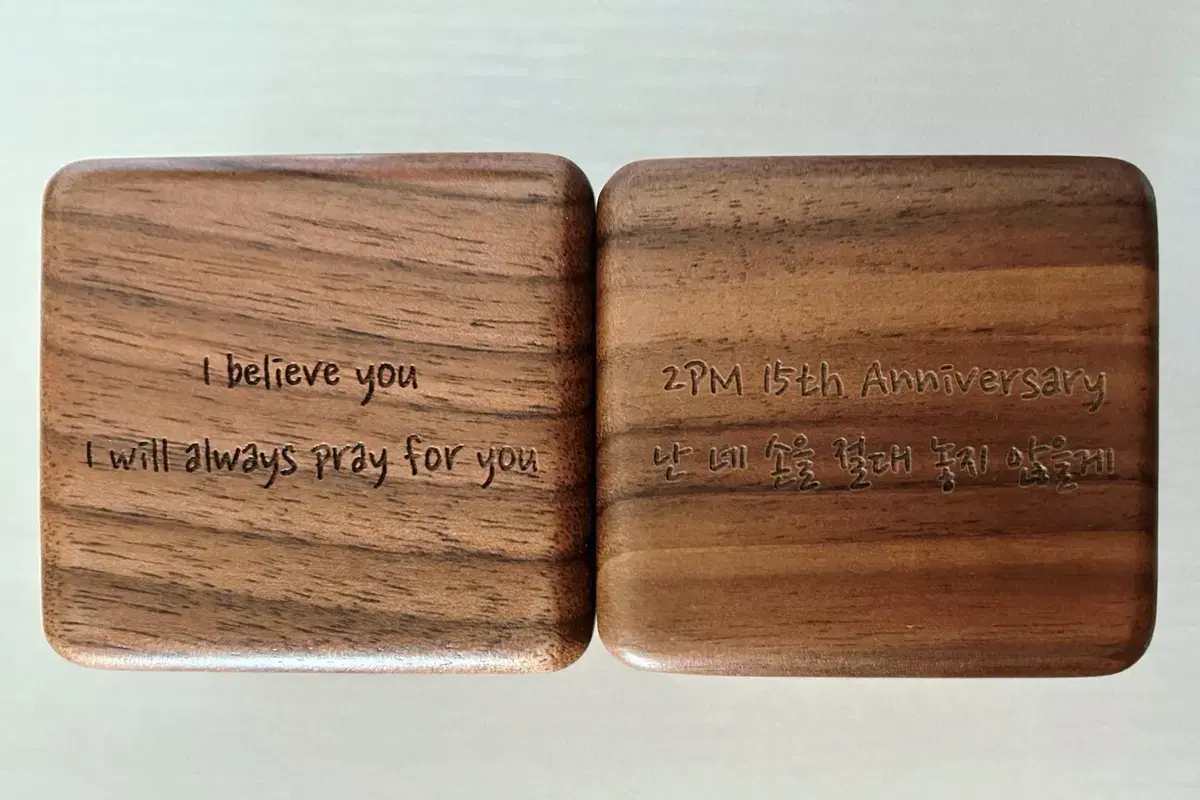 I believe you
I will always pray for you
2PM 15th Anniversary
난 네 손을 절대 놓지 않을게